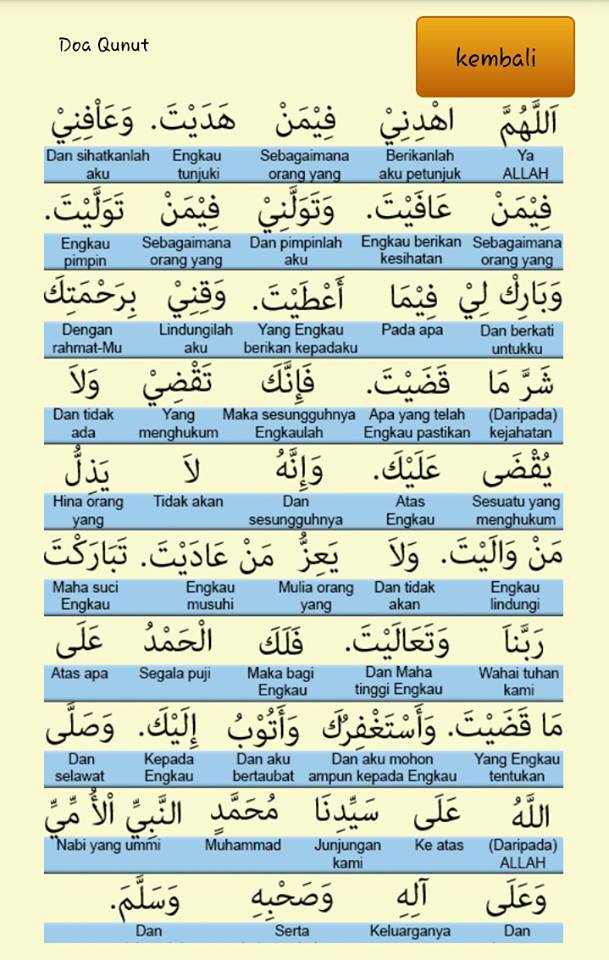 Doa Qunut
kembali
اَللَّهُمَّ اهْدِنِيْ فِيْمَنْ هَدَيْتَ. وَعَاْفِنِيْ
Dan sihatkanlah Engkau Sebagaimana Berikanlah Ya
aku tunjuki orang yang aku petunjuk ALLAH
فِيْمَنْ عَافَيْتَ. وَتَوَلَّنِيْ فِيْمَنْ تَوَلَّيْتَ.
Engkau Sebagaimana Dan pimpinlah Engkau berikan Sebagaimana
pimpin orang yang aku kesihatan orang yang
وَبَارِكْ لِيْ فِيْمَا أَعْطَيْتَ. وَقِنِيْ بِرَحْمَتِكَ
Dengan Lindungilah Yang Engkau Pada apa Dan berkati
rahmat-Mu aku berikan kepadaku untukku
شَرَّ مَا قَضَيْتَ. فَإِنَّكَ تَقْضِيْ وَلاَ
Dan tidak Yang Maka sesungguhnya Apa yang telah (Daripada)
ada menghukum Engkaulah Engkau pastikan kejahatan
يُقْضَى عَلَيْكَ. وَإِنَّهُ لاَ يَذِلُّ
Hina orang Tidak akan Dan Atas Sesuatu yang
yang sesungguhnya Engkau menghukum
مَنْ وَالَيْتَ. وَلاَ يَعِزُّ مَنْ عَادَيْتَ. تَبَارَكْتَ
Maha suci Engkau Mulia orang Dan tidak Engkau
Engkau musuhi yang akan lindungi
رَبَّناَ وَتَعَالَيْتَ. فَلَكَ الْحَمْدُ عَلَى
Atas apa Segala puji Maka bagi Dan Maha Wahai tuhan
Engkau tinggi Engkau kami
مَا قَضَيْتَ. وَأَسْتَغْفِرُكَ وَأَتُوْبُ إِلَيْكَ. وَصَلَّى
Dan Kepada Dan aku Dan aku mohon Yang Engkau
selawat Engkau bertaubat ampun kepada Engkau tentukan
اللَّهُ عَلَى سَيِّدِنَا مُحَمَّدٍ النَّبِيِّ اْلأُ مِّيِّ
Nabi yang ummi Muhammad Junjungan Ke atas (Daripada)
kami ALLAH
وَعَلَى آلِهِ وَصَحْبِهِ وَسَلَّمَ.
Dan Serta Keluarganya Dan